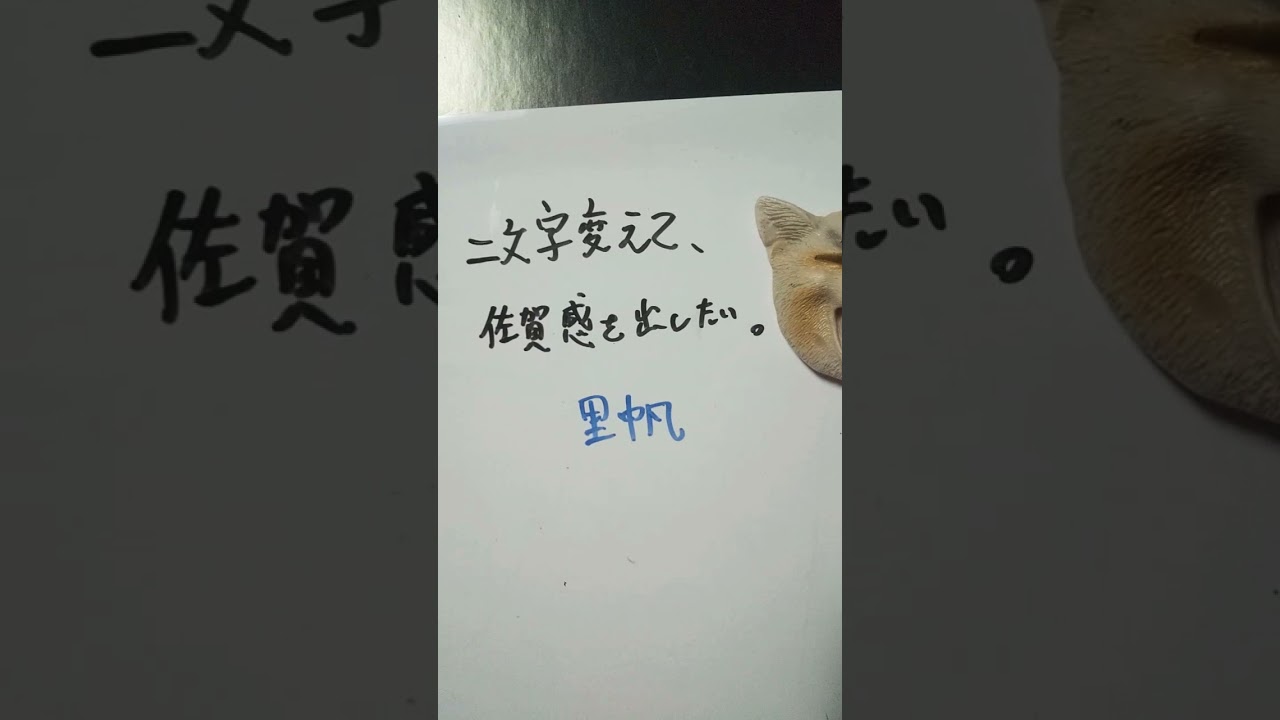 二文字変えて、
佐賀感を出したい。
里帆